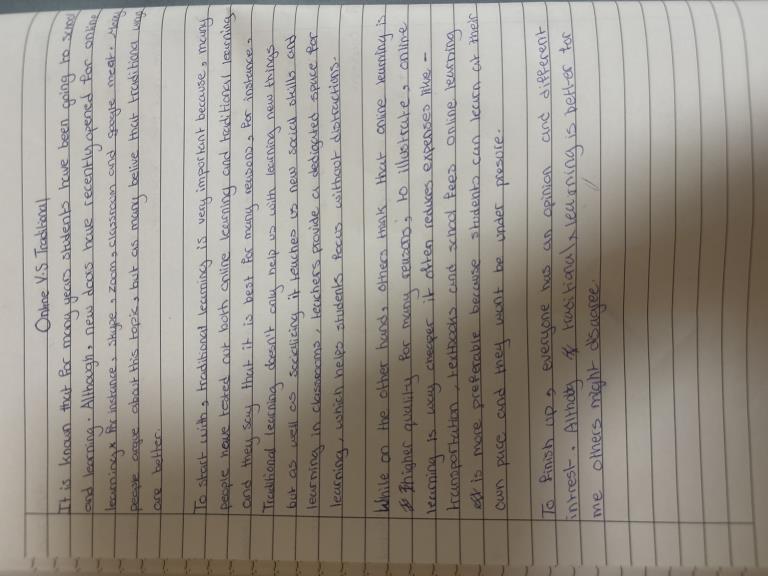 Online V.S Traditional
It is known that for many years students have been going to school
and learning. Although, new doors have recently opened for online
learning. For instance, skype, zoom, classroom and google meet. Many
people argue about this topic, but as many belive that traditional ways
are better.
To start with, traditional learning is very important because, many
people have tested out both online learning and traditional learning
and they say that it is best for many reasons, for instance,
Traditional learning doesn't only help us with learning new things
but as well as socializing it teaches us new social skills and
learning in classrooms, teachers provide a dedigated space for
learning, which helps students focus without distractions.
While on the other hand, others think that online learning is
higher quality for many reasons, to illustrate, online
learning is way cheaper it often reduces expenses like -
transportation, textbooks and school fees online learning
is more preferable because students can learn at their
own pace and they wont be under presure.
To finish up, everyone has an opinion and different
intrest. Althoug traditional learning is better for
me others might disagree.